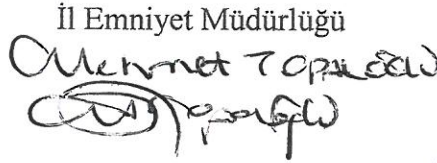 İl Emniyet Müdürlüğü
Mehmet Topaloğlu